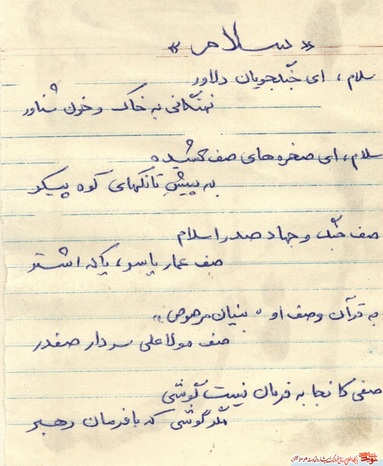 «سلام»
سلام، ای جنگجویان دلاور
نهنگانی به خاک و خون شناور
سلام، ای صخره‌های صف کشیده
به پیش تانکهای کوه پیکر
صف جنگ و جهاد صدر اسلام
صف عمار یاسر، مالک اشتر
به قرآن وصف او "بنیان مرصوص"
صف مولا علی سردار صفدر
صفی کانجا به فرمان نیست گوشی
مگر گوشی که با فرمان رهبر